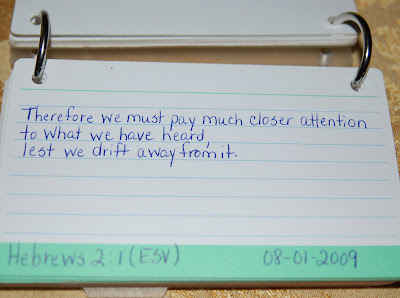 Therefore we must pay much closer attention
to what we have heard,
lest we drift away from it.
Hebrews 2:1 (ESV) 08-01-2009